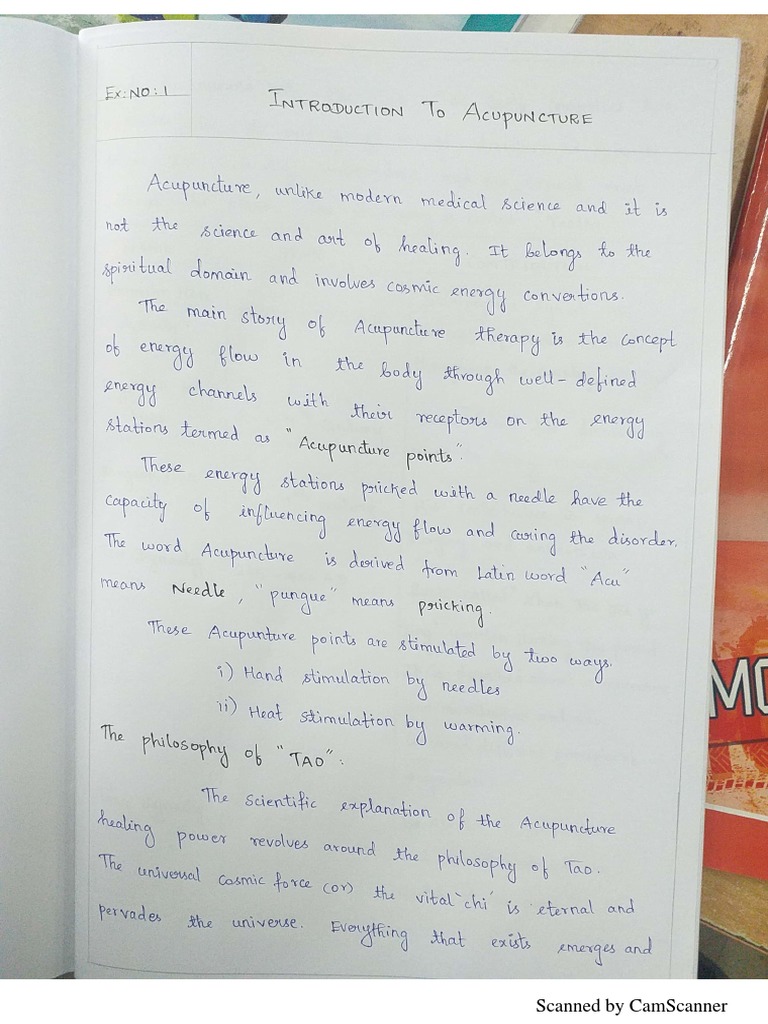 Ex:NO:1
INTRODUCTION TO ACUPUNCTURE
Acupuncture, unlike modern medical science and it is
not the science and art of healing. It belongs to the
spiritual domain and involves cosmic energy convertions.
The main story of Acupuncture therapy is the concept
of energy flow in the body through well-defined
energy channels with their receptors on the energy
stations termed as "Acupuncture points".
These energy stations pricked with a needle have the
capacity of influencing energy flow and curing the disorder.
The word Acupuncture is derived from Latin word "Acu"
means Needle, "pungue" means pricking.
These Acupunture points are stimulated by two ways.
i) Hand stimulation by needles
ii) Heat stimulation by warming.
The philosophy of "TAO":
The scientific explanation of the Acupuncture
healing power revolves around the philosophy of Tao.
The universal cosmic force (or) the vital 'chi' is eternal and
pervades the universe. Everything that exists emerges and
MO
Scanned by CamScanner